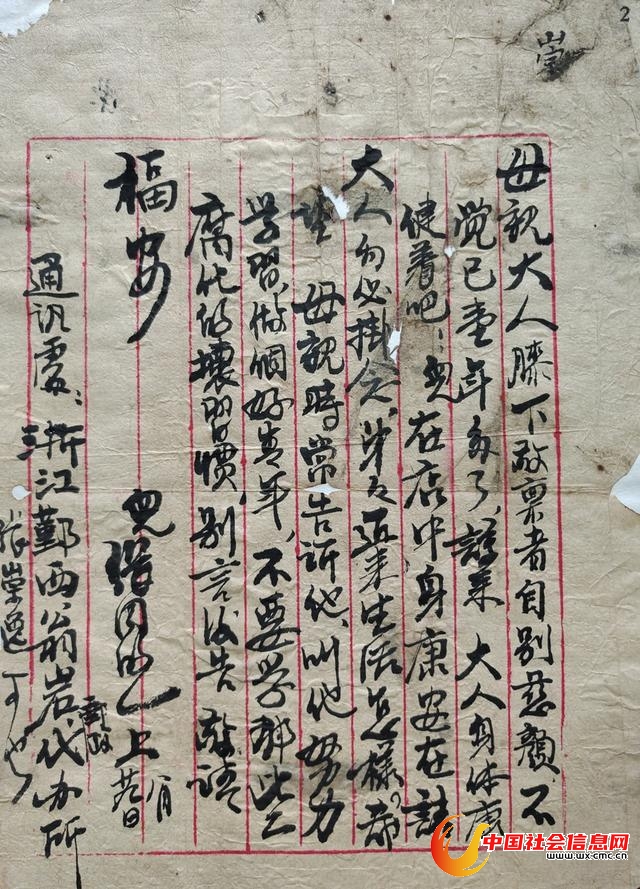 2
崇
母親大人膝下敬稟者自别慈顏不
觉已壹年多了，諒來 大人身体康
健着吧！兒在店中身康安在請
大人勿必掛念，弟々近来生活怎樣？希
望 母親時常告訴他，叫他努力
学習，做個好青年，不要学那些
腐化的壞習慣，别言後告 敬請
福安
兒 上 八月 日
通訊處：浙江鄞西翁岩郵政代办所
張崇逸
中国社会信息网
www.wx-cmc.cn